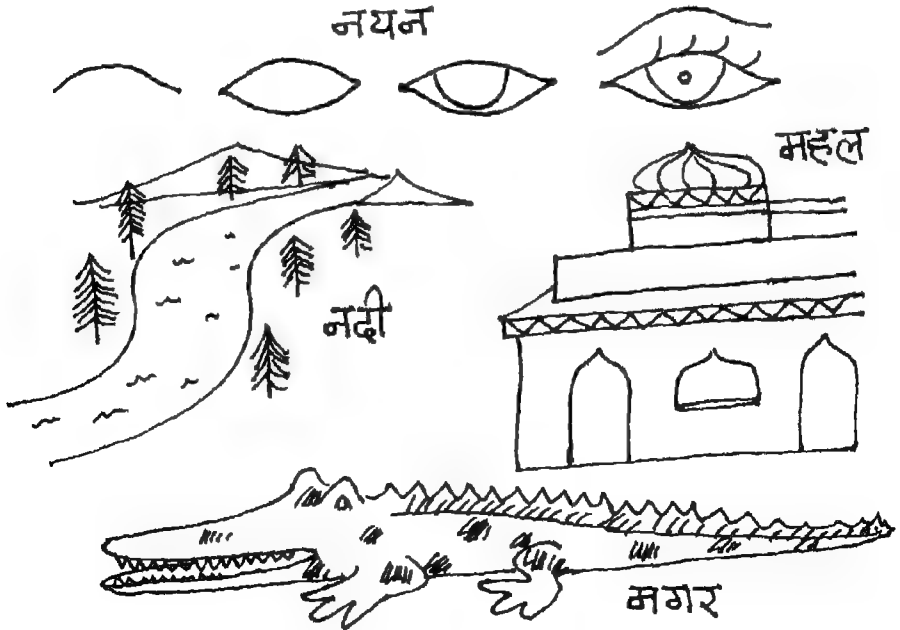 नयन
महल
नदी
मगर